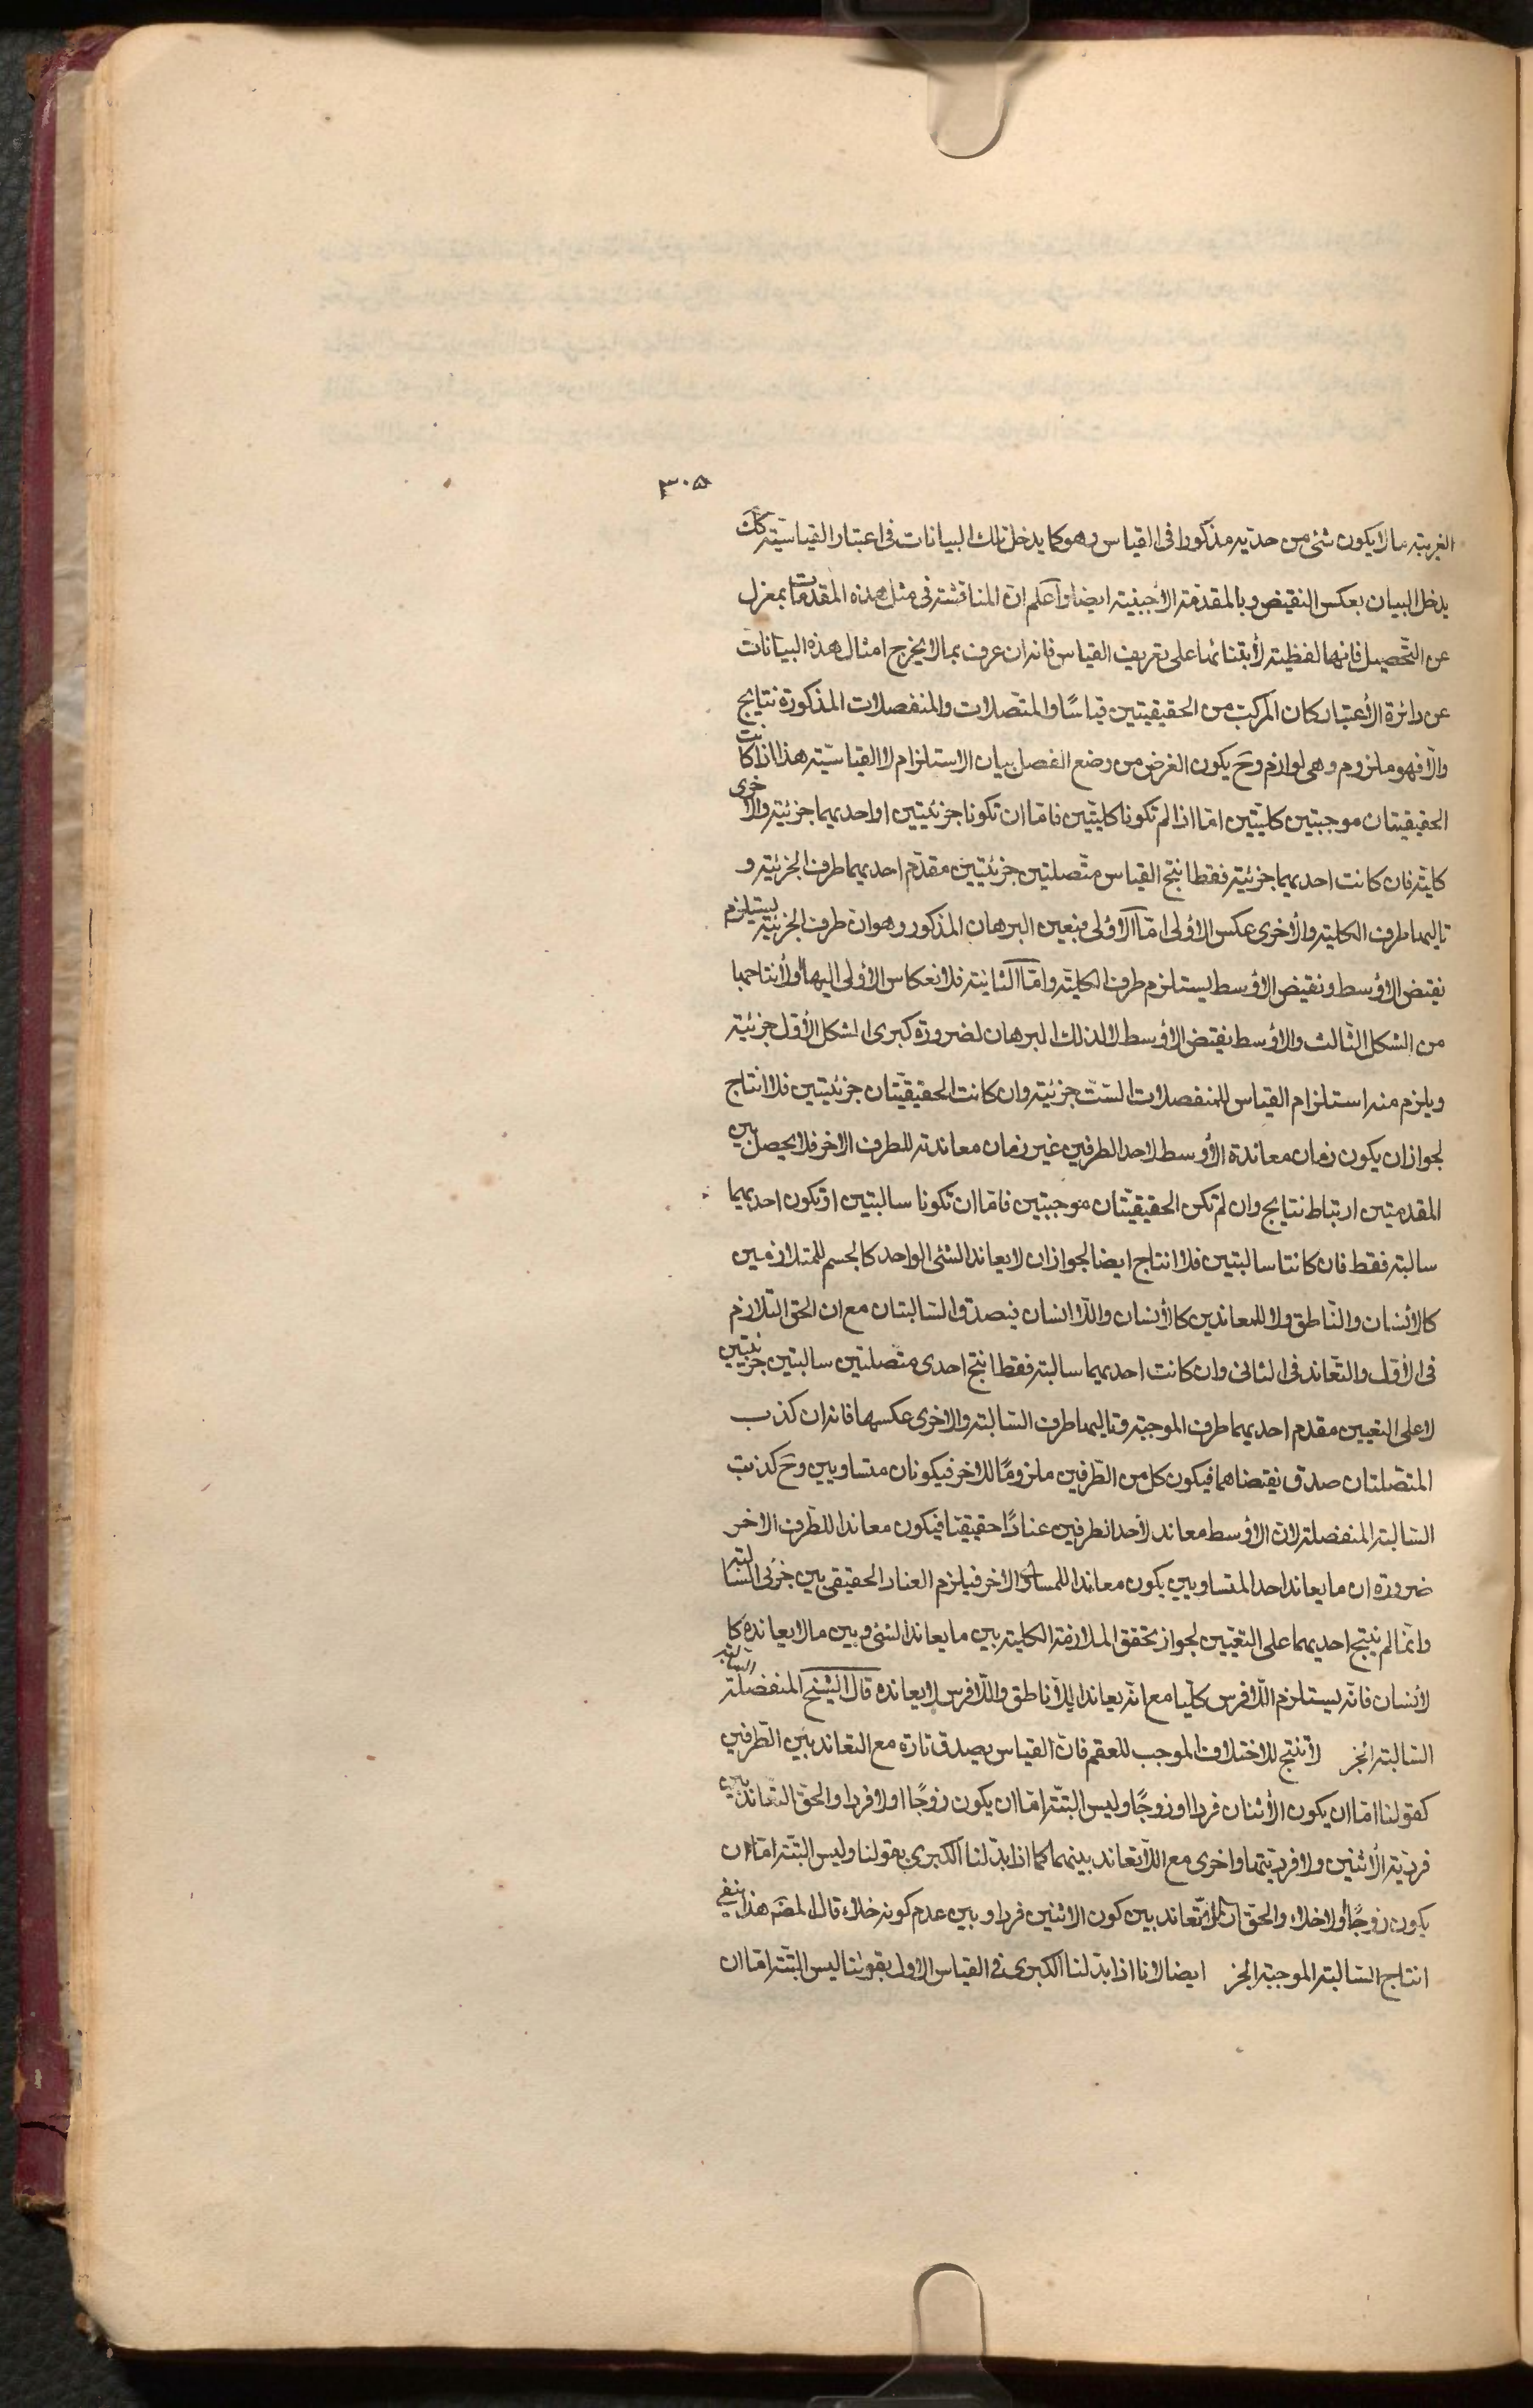 ٣٠۵
الغريبة ما لا يكون شئ من حديه مذكورا فى القياس وهو كما يدخل تلك البيانات فى اعتبار القياسيّة كك
يدخل البيان بعكس النقيض وبالمقدّمة الأجنبيّة ايضا وآعلم انّ المناقشة فى مثل هذه المقدّمات بمعزل
عن التّحصيل فانها لفظية لأبتنائها على تعريف القياس فانه ان عرف بما لا يخرج امثال هذه البيانات
عن دائرة الأعتبار كان المركّب من الحقيقيتين قياسًا والمتّصلات والمنفصلات المذكورة نتايج
والّا فهو ملزوم وهى لوازم وح يكون الغرض من وضع الفصل بيان الاستلزام لا القياسيّة هذا اذا كانت
الحقيقيتان موجبتين كليتّين امّا اذا لم تكونا كليتّين فامّا ان تكونا جزئيّتين او احديهما جزئيّة والأخرى
كليّة فان كانت احديهما جزئيّة فقط انتج القياس متّصلتين جزئيّتين مقدّم احديهما طرف الجزئية و
تاليها طرف الكلية والأخرى عكس الأولى امّا الاولى فبعين البرهان المذكور وهو ان طرف الجزئية يستلزم
نقيض الأوسط ونقيض الأوسط يستلزم طرف الكليّة وامّا الثانية فلانعكاس الأولى اليها أو لأنتاجها
من الشكل الثّالث والأوسط نقيض الأوسط لا لذلك البرهان لضرورة كبرى الشكل الأوّل جزئيّة
ويلزم منه استلزام القياس للمنفصلات السّتّ جزئيّة وان كانت الحقيقيّتان جزئيّتين فلا انتاج
لجواز ان يكون زمان معاندة الأوسط لاحد الطرفين غير زمان معاندته للطرف الاخر فلا يحصل بين
المقدمتين ارتباط نتايج وان لم تكن الحقيقيّتان موجبتين فامّا ان تكونا سالبتين او تكون احديهما
سالبة فقط فان كانتا سالبتين فلا انتاج ايضا لجواز ان لا يعاند الشئ الواحد كالجسم للمتلازمين
كالأنسان والنّاطق ولا للمعاندين كالأنسان واللّا انسان فيصدق السّالبتان مع ان الحق التّلازم
فى الأوّل والتعاند فى الثانى وان كانت احديهما سالبة فقط انتج احدى متّصلتين سالبتين جزئيتين
لا على التعيين مقدم احديهما طرف الموجبة وتاليها طرف السّالبة والاخرى عكسها فانه ان كذب
المتصّلتان صدق نقيضاهما فيكون كل من الطّرفين ملزومًا للاخر فيكونان متساويين وح كذبت
السّالبة المنفصلة لانّ الاوسط معاند لأحد الطرفين عنادًا حقيقيّا فيكون معاندا للطّرف الاخر
ضرورة ان ما يعاند احد المتساويين يكون معاندا للمساوى الاخر فيلزم العناد الحقيقى بين جزئى السّالبة
وانّما لم ينتج احديهما على التعيّين لجواز تحقق الملازمة الكلية بين ما يعاند الشئ وبين ما لا يعانده كا
لأنسان فانّه يستلزم اللّافرس كليّا مع انّه يعاند اللّاناطق واللّافرس لا يعانده قال الشيخ المنفصلة السّالبة
السّالبة الجز لا تنتج للاختلاف الموجب للعقم فانّ القياس يصدق تارة مع التعاند بين الطّرفين
كقولنا امّا ان يكون الأثنان فردا او زوجًا وليس البتّة امّا ان يكون زوجًا او لا فردا والحقّ التّعاند بين
فرديّة الأثنين ولا فرديّتها واخرى مع اللّاتعاند بينهما كما اذا بدّلنا الكبرى بقولنا وليس البتّة امّا ان
يكون زوجًا أو لا خلاء والحقّ ان لا تعاند بين كون الاثنين فردا وبين عدم كونه خلاء قال المصنّف هذا ينفى
انتاج السّالبة الموجبة الجز ايضا لانا اذا بدّلنا الكبرى فى القياس الاول بقولنا ليس البتّة امّا ان